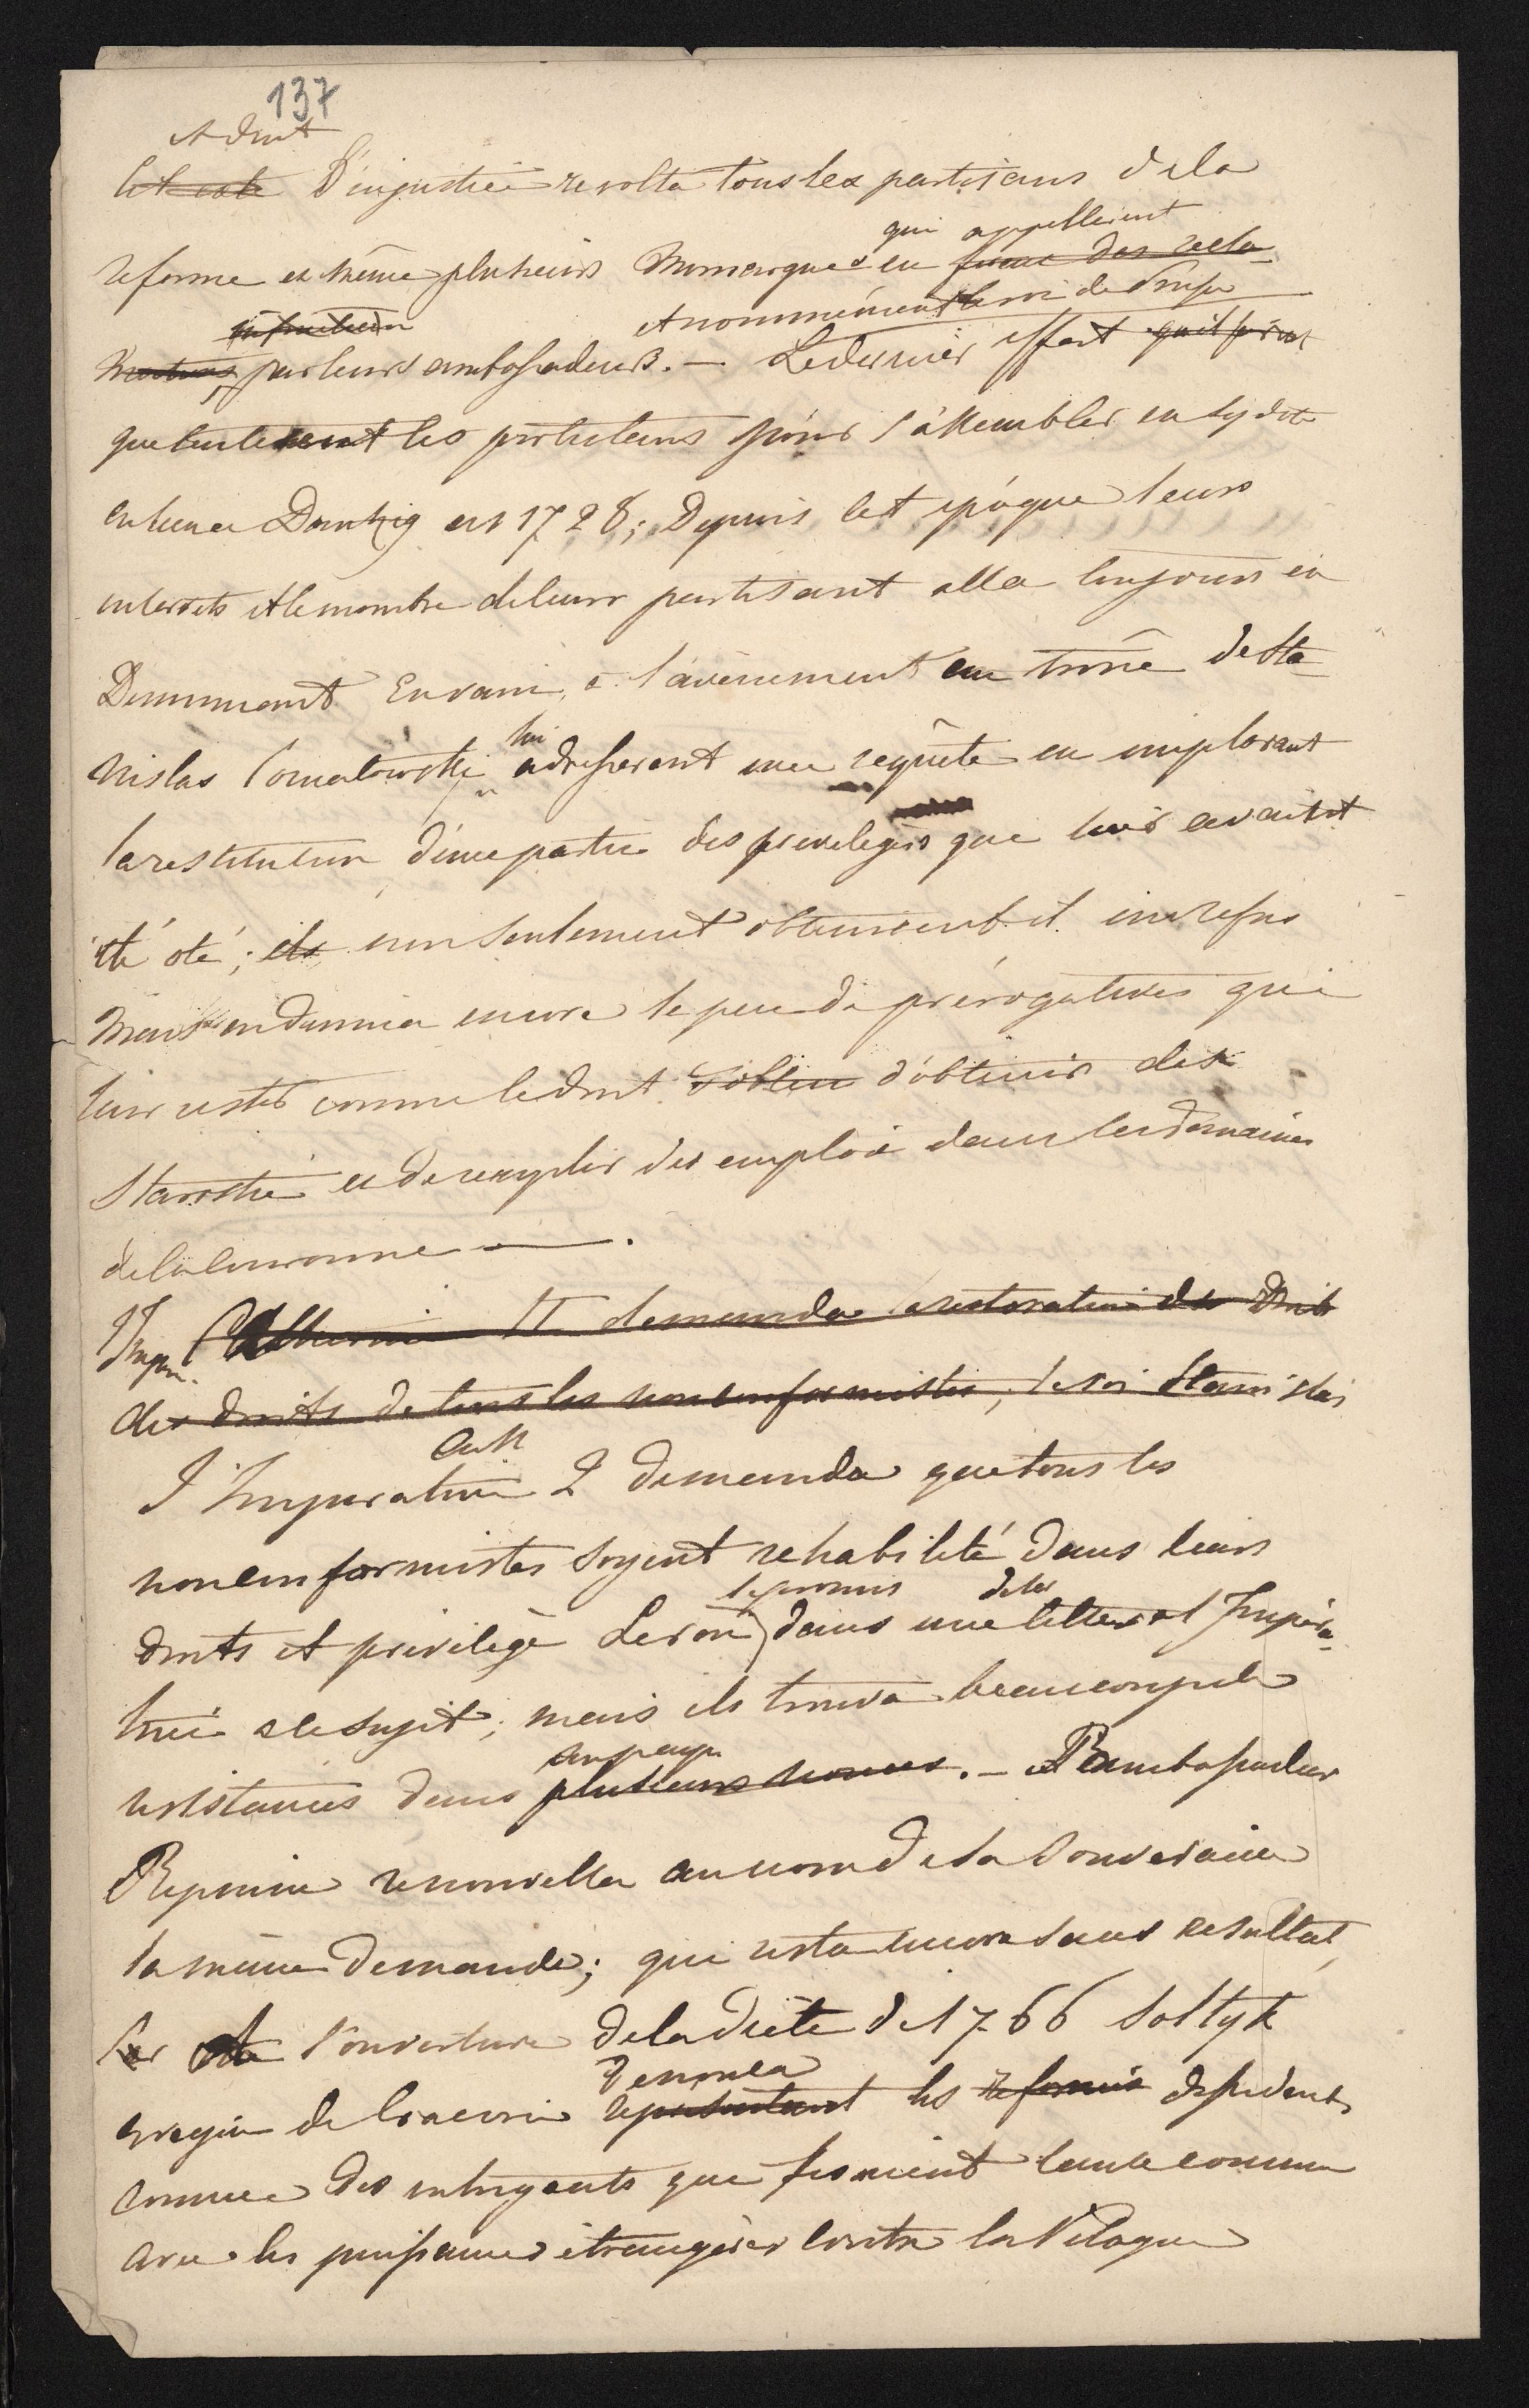 137
et dont
D'injustice revolta tous les partisans de la
qui appelleient
reforme et même plusieurs Monarques en
et nommément le roi de Prusse
par leurs ambassadeurs. — Le dernier effort qu'il firent
que tentèrent les protestans pour s'assembler en synode
eu lieu a Dantzig en 1728; Depuis cet epoque leurs
interets et le nombre de leurs partisant alla toujours en
Diminuant En vain, a l'avènement au trône de Sta-
lui
nislas Poniatowski adresserent une requête en implorant
la restitution d'une partie des privileges que leurs avaient
été oté; ils non seulement obtinrent-il un refus
mais on diminua encore le peu de prérogatives qui
leur restes comme le droit d'obtenir des
Starostie et de remplir des emplois dans les domaines
de la couronne —.
Imper. Catherine II demanda la restoration des Droits
des droits de tous les nonconformistes, le roi Stanislas
Cath
L'Imperatrice 2 demanda que tous les
nonconformistes soyent rehabilité dans leurs
le promis
droits et privilège Le roi dans une lettre a l'Impéra-
trice a ce sujet; mais ils trouva beaucoup de
resistances dans plusieurs . — L'ambassadeur
Repnine renouvella au nom de sa Souveraine
la même demande; qui resta encore sans resultat,
l'ouverture de la Diète de 1766 Soltyk
denonça
eveque de Cracovie representant les reformés dissidents
comme des intrigants que fesoient cause commune
avec les puissances étrangères contre la Pologne